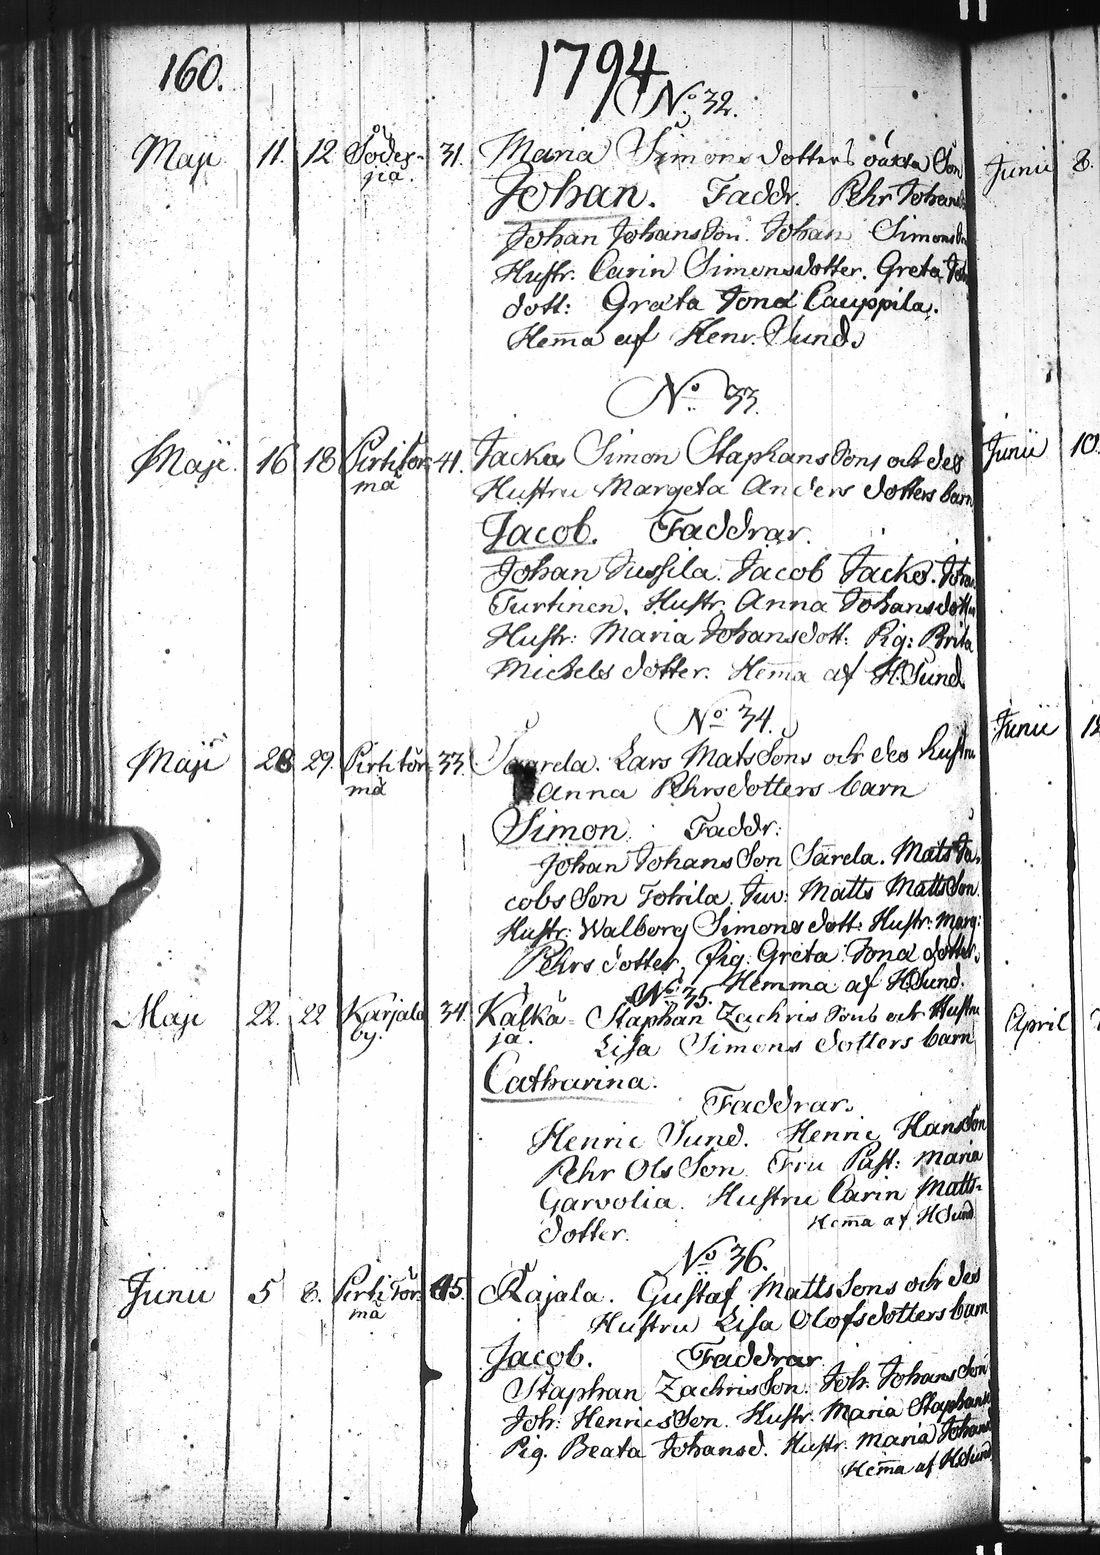 160. 1794
No. 32.
Maji 11. 12. Söder- 31. Maria Simons dotters oäkta Son Junii 8.
jiä.
Johan. Faddr. Pehr Johans
Johan Johans Son. Johan Simons
Hustr. Carin Simonsdotter. Greta
dott: Greta Jona Cauppila.
Hem̄a af Henr. Sund.
No. 33.
Maji 16 18 Pirtitör 41. Jacko Simon Staphans Sons och des Junii 10.
mä Hustru Margeta Anders dotters barn
Jacob. Faddrar.
Johan Jussila. Jacob Jacko. Johan
Turtinen. Hustr. Anna Johansdotter
Hustr: Maria Johansdott: Pig: Brita
Michels dotter. Hem̄a af H. Sund
No. 34.
Maji 28 29. Pirtitör 33. Lars Mats Sons och des hustru Junii
mä Anna Pehrsdotters barn
Simon. Faddr:
Johan Johans Son Särela. Mats Ja-
cobs Son Tohila. Matts Matts Son.
Hustr: Walborg Simons dott: Hustr: Marg:
Pehrs dotter, Pig. Greta Jona dotter.
Hemma af H. Sund.
No. 35.
Maji 22. 22 Karjala 34. Kälkä- Staphan Zachris Sons och Hustru April
by. jä. Lisa Simons dotters barn
Catharina.
Faddrar.
Henric Sund. Henric Hans Son
Pehr Ols Son Fru Past: Maria
Garvolia. Hustru Carin Matts-
dotter. Hem̄a af H Sund
No. 36.
Junii 5 8. Pirtitör 45. Rajala. Gustaf Matts Sons och des
mä Hustru Lisa Olofsdotters barn
Jacob. Faddrar
Staphan Zachris Son. Joh. Johans Son
Joh: Henrics Son. Hustr. Maria Staphans
Pig. Beata Johansd. Hustr. Maria Johans
Hem̄a af H Sund